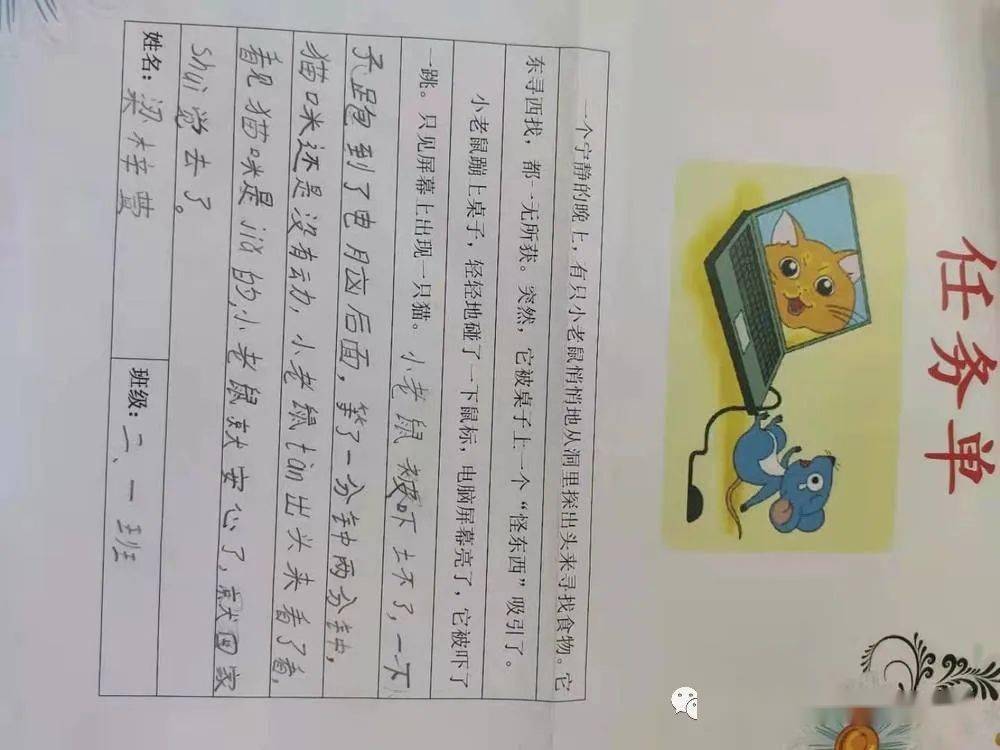 任务单
一个宁静的晚上，有只小老鼠悄悄地从洞里探出头来寻找食物。它
东寻西找，都一无所获。突然，它被桌子上一个“怪东西”吸引了。
小老鼠蹦上桌子，轻轻地碰了一下鼠标，电脑屏幕亮了，它被吓了
一跳。只见屏幕上出现一只猫。小老鼠被吓坏了，一下
子跑到了电脑后面，等了一分钟两分钟，
猫咪还是没有动力，小老鼠tàn出头来看了看，
看见猫咪是jiǎ的，小老鼠就安心了，就回家
shuì觉去了。
姓名：梁梓萱
班级：二、一班